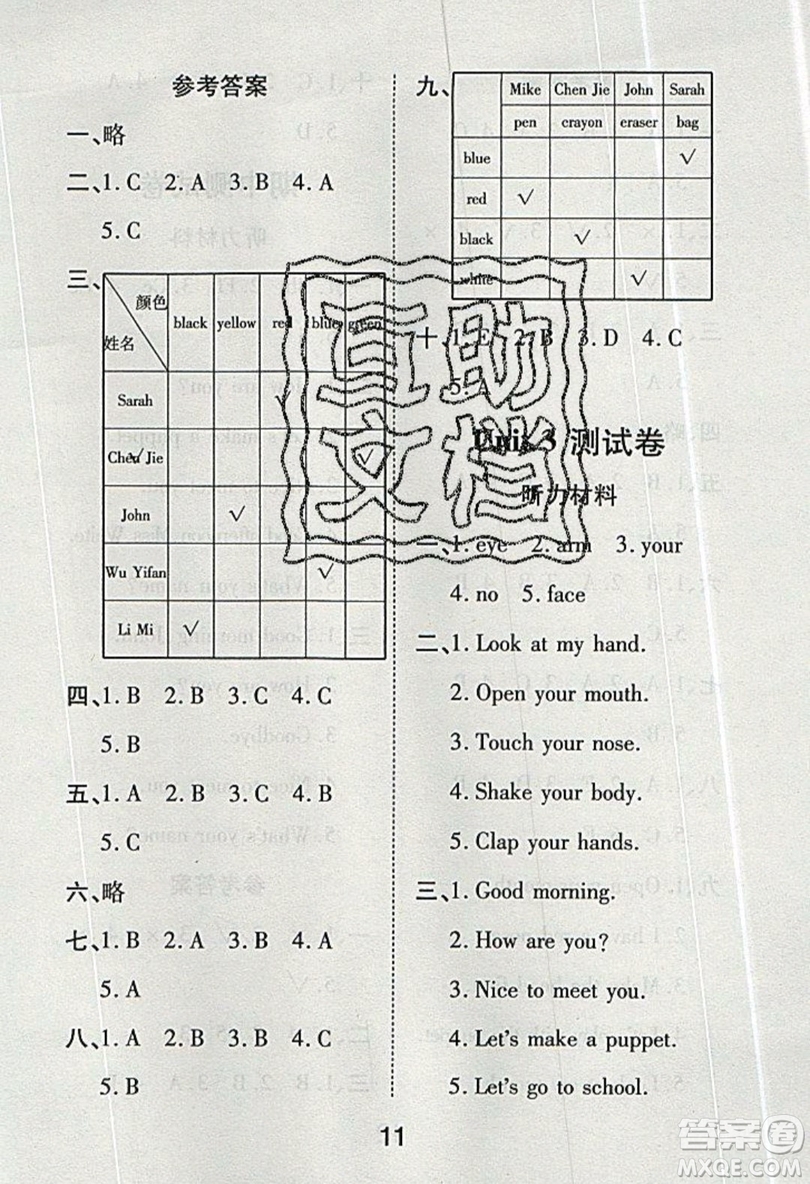 参考答案
一、略
二、1. C 2. A 3. B 4. A
5. C
三、
颜色 black yellow red blue green
姓名
Sarah √
Chen Jie √
John √
Wu Yifan √
Li Mi √
四、1. B 2. B 3. C 4. C
5. B
五、1. A 2. B 3. C 4. B
5. C
六、略
七、1. B 2. A 3. B 4. A
5. A
八、1. A 2. B 3. B 4. C
5. B
九、
Mike Chen Jie John Sarah
pen crayon eraser bag
blue √
red √
black √
white √
十、1. E 2. B 3. D 4. C
5. A
Unit 3 测试卷
听力材料
一、1. eye 2. arm 3. your
4. no 5. face
二、1. Look at my hand.
2. Open your mouth.
3. Touch your nose.
4. Shake your body.
5. Clap your hands.
三、1. Good morning.
2. How are you?
3. Nice to meet you.
4. Let's make a puppet.
5. Let's go to school.
11
互助
文档
答案圈
MXQE.COM